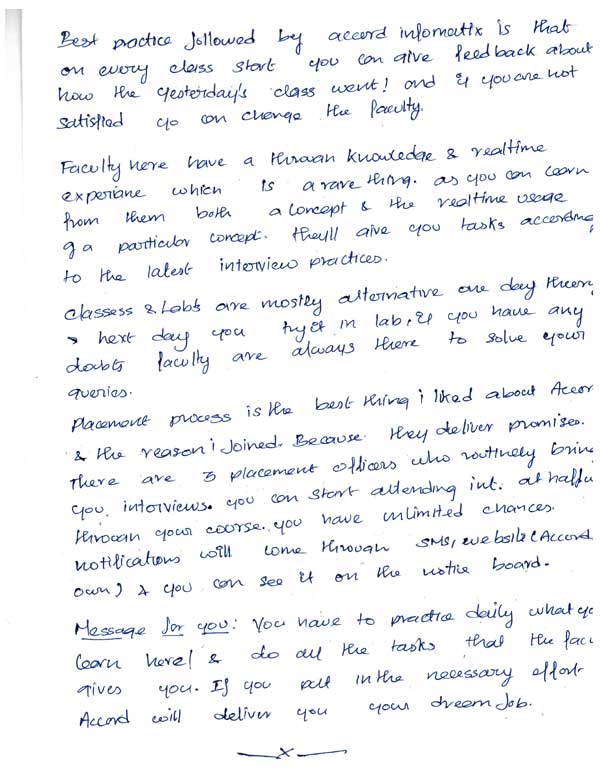 Best practice followed by accord infomatix is that
on every class start you can give feedback about
how the yesterday's class went! and if you are not
satisfied yo can change the faculty.
Faculty here have a throuan knowledge & realtime
experiane which is a rare thing. as you can learn
from them both a concept & the realtime usage
of a particular concept. they'll give you tasks according
to the latest interview practices.
classess & Lab's are mostly alternative one day theory
& next day you try it in lab, if you have any
doubts faculty are always there to solve your
queries.
Placement process is the best thing i liked about Accor
& the reason i joined. Because they deliver promises.
There are 3 placement officers who routinely bring
you interviews. you can start attending int. at halfw
throuan your course. you have unlimited chances.
notifications will come through SMS, website (Accord
own) & you can see it on the notice board.
Message for you: You have to practice daily what yo
learn here! & do all the tasks that the facu
gives you. If you put in the necessary effort
Accord will deliver you your dream Job.
x